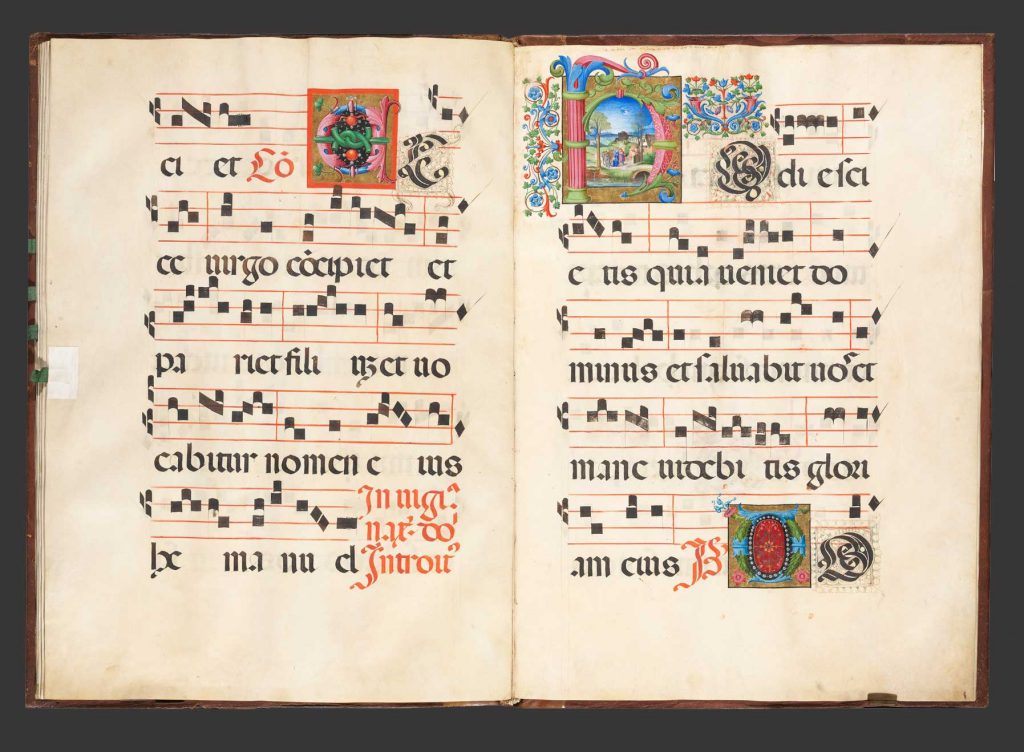 ci et Cō E C
ce uirgo cōcipiet et
pa riet fili uȝ et uo
cabitur nomen e ius
he ma nu el
In uigi.
nat. do
Introit
H O di e sci
e tis quia ueniet do
minus et saluabit nos et
mane uidebi tis glori
am eius Ps D O